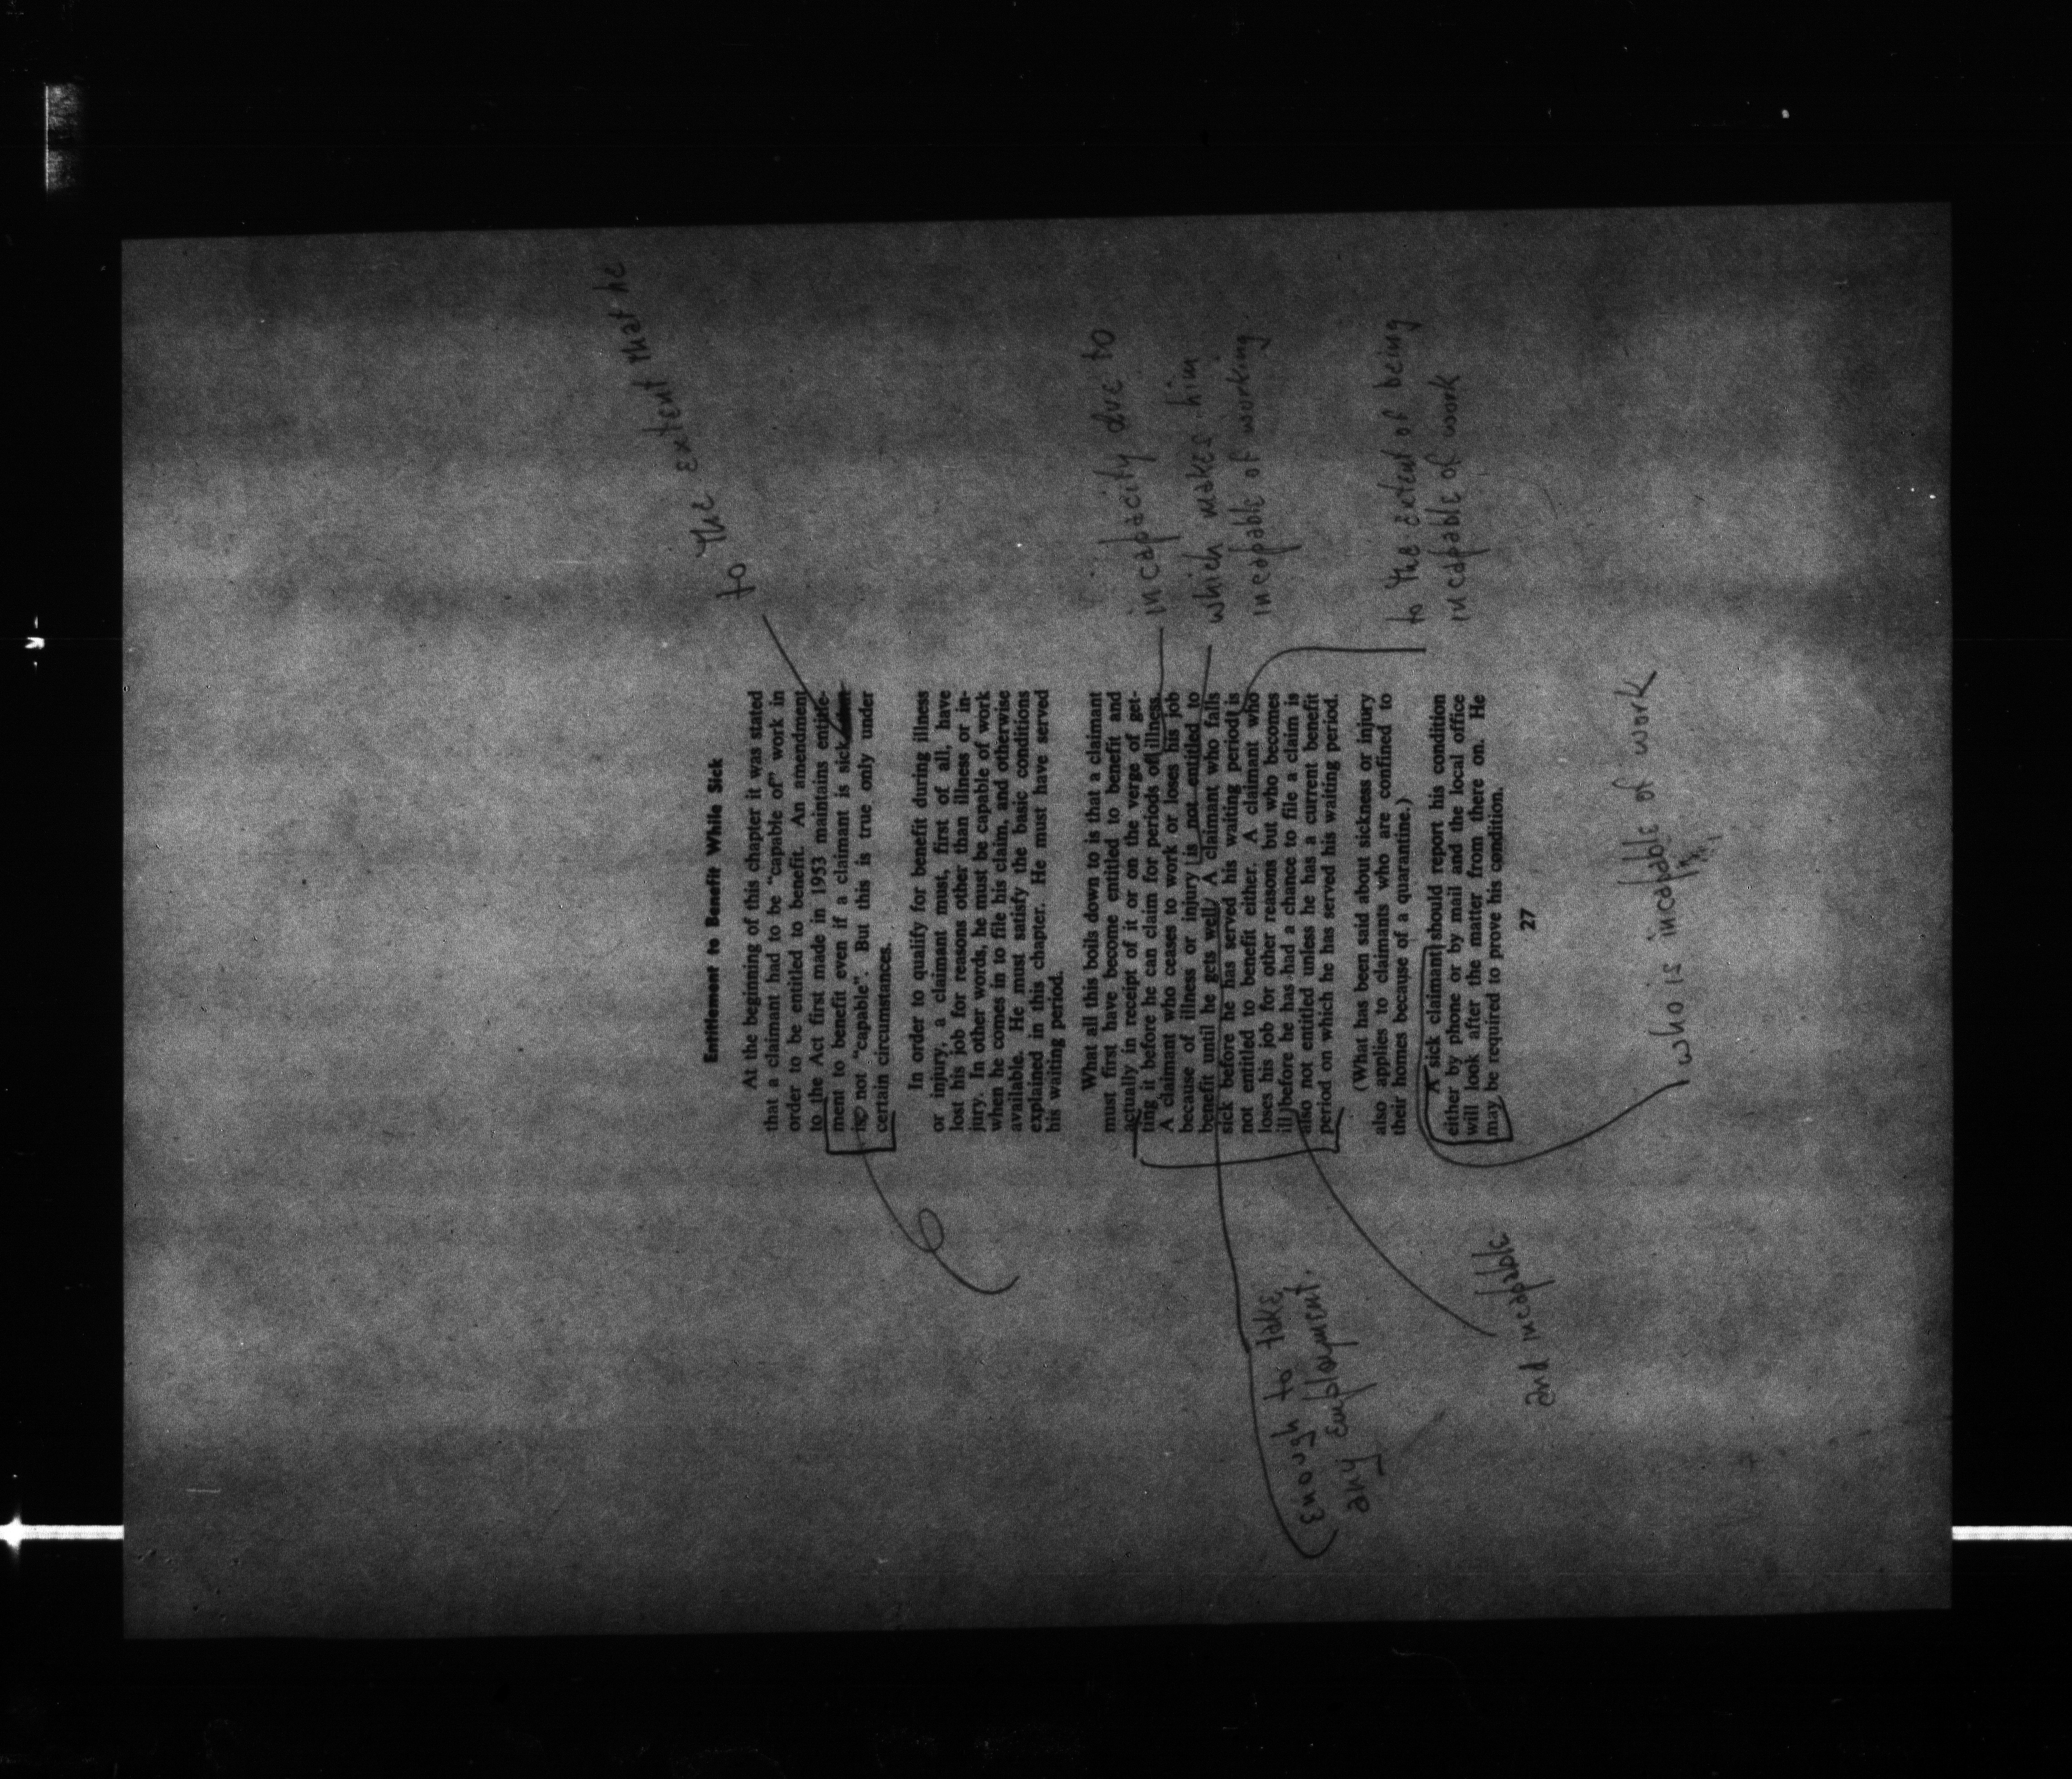 to the extent that he
Entitlement to Benefit While Sick
At the beginning of this chapter it was stated
that a claimant had to be "capable of" work in
order to be entitled to benefit. An amendment
to the Act first made in 1953 maintains entitle-
ment to benefit even if a claimant is sick
is not "capable". But this is true only under
certain circumstances.
In order to qualify for benefit during illness
or injury, a claimant must, first of all, have
lost his job for reasons other than illness or in-
jury. In other words, he must be capable of work
when he comes in to file his claim, and otherwise
available. He must satisfy the basic conditions
explained in this chapter. He must have served
his waiting period.
What all this boils down to is that a claimant
must first have become entitled to benefit and
actually in receipt of it or on the verge of get-
ting it before he can claim for periods of illness.
A claimant who ceases to work or loses his job
because of illness or injury is not entitled to
benefit until he gets well. A claimant who falls
sick before he has served his waiting period is
not entitled to benefit either. A claimant who
loses his job for other reasons but who becomes
ill before he has had a chance to file a claim is
also not entitled unless he has a current benefit
period on which he has served his waiting period.
(What has been said about sickness or injury
also applies to claimants who are confined to
their homes because of a quarantine.)
A sick claimant should report his condition
either by phone or by mail and the local office
will look after the matter from there on. He
may be required to prove his condition.
27
incapacity due to
which makes him
incapable of working
to the extent of being
incapable of work
enough to take
any employment.
and incapable
who is incapable of work